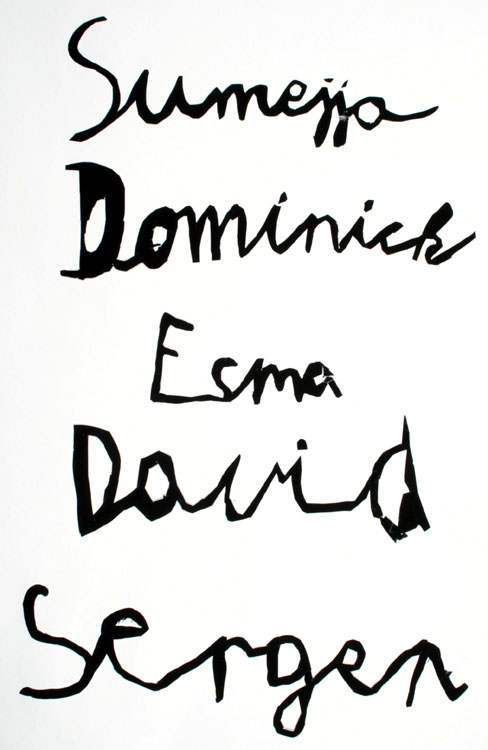 Sumejja
Dominick
Esma
David
Sergen